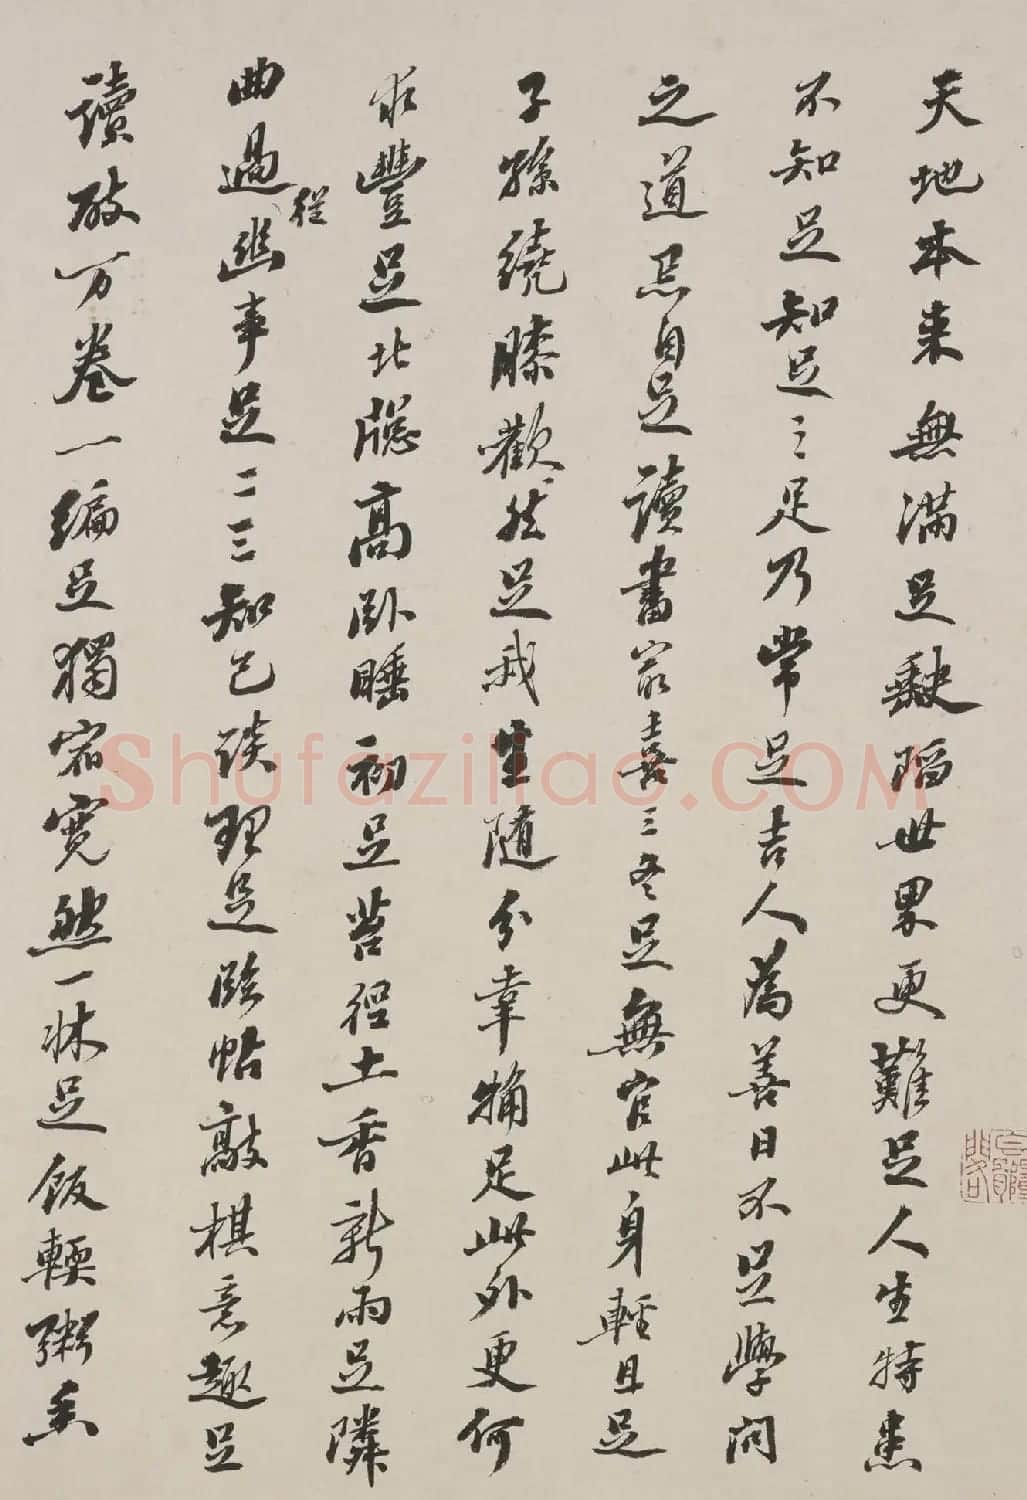 天地本来無滿足缺陷世界更難足人生特患
不知足知足之足乃常足吉人為善日不足學問
之道忌自足讀書最喜三冬足無官此身輕且足
子孫繞膝歡然足我生随分幸猶足此外更何
求豐足北牕高卧睡初足苔径土香新雨足隣
曲過從幽事足二三知己談理足臨帖敲棋意趣足
讀破万卷一編足獨宿寬然一牀足飯輭粥香
Shufaziliao.COM